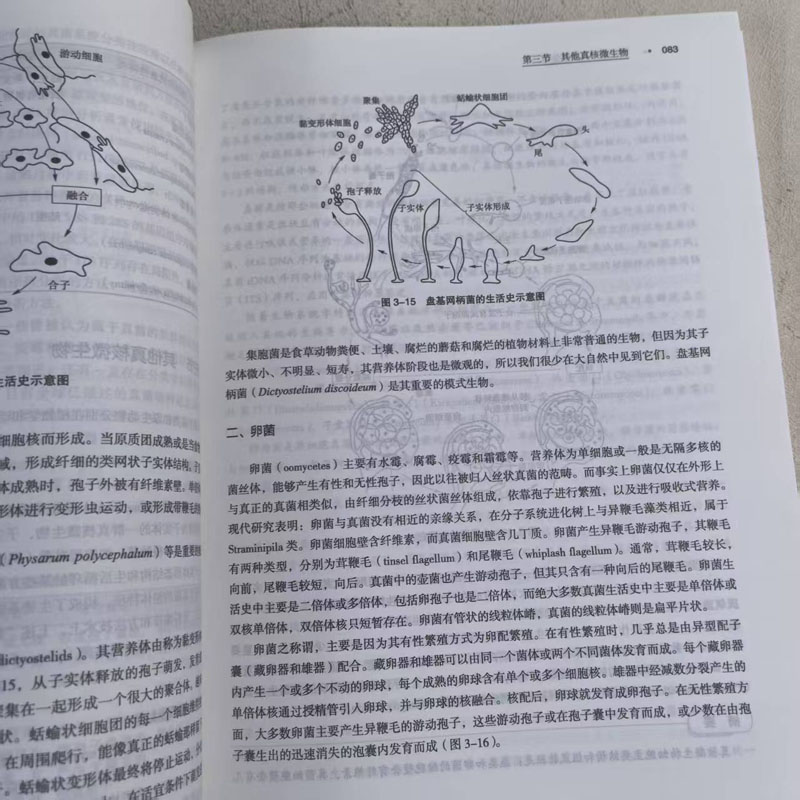 游动细胞
融合
合子
生活史示意图
细胞核而形成。当原质团成熟或是当
域，形成纤细的类网状子实体结构。
体成熟时，孢子外被有纤维素壁，
形体进行变形虫运动，或形成带鞭毛
(Physarum polycephalum) 等是重要
dictyostelids）。其营养体由称为黏变
15，从子实体释放的孢子萌发，
聚集在一起形成一个很大的聚合体，
状。蛞蝓状细胞团的每一个细胞
在周围爬行，能像真正的蛞蝓那样
蛞蝓状变形体最终将停止运动，
在适宜条件下
第三节 其他真核微生物 • 083
聚集
蛞蝓状细胞团
黏变形体细胞
头
尾
孢子释放
子实体
子实体形成
图 3-15 盘基网柄菌的生活史示意图
集胞菌是食草动物粪便、土壤、腐烂的蘑菇和腐烂的植物材料上非常普通的生物，但因为其子
实体微小、不明显、短寿，其营养体阶段也是微观的，所以我们很少在大自然中见到它们。盘基网
柄菌（Dictyostelium discoideum）是其重要的模式生物。
二、卵菌
卵菌（oomycetes）主要有水霉、腐霉、疫霉和霜霉等。营养体为单细胞或一般是无隔多核的
菌丝体，能够产生有性和无性孢子，因此以往被归入丝状真菌的范畴。而事实上卵菌仅仅在外形上
与真正的真菌相类似，由纤细分枝的丝状菌丝体组成，依靠孢子进行繁殖，以及进行吸收式营养。
现代研究表明：卵菌与真菌没有相近的亲缘关系，在分子系统进化树上与异鞭毛藻类相近，属于
Straminipila 类。卵菌细胞壁含纤维素，而真菌细胞壁含几丁质。卵菌产生异鞭毛游动孢子，其鞭毛
有两种类型，分别为茸鞭毛（tinsel flagellum）和尾鞭毛（whiplash flagellum）。通常，茸鞭毛较长，
向前，尾鞭毛较短，向后。真菌中的壶菌也产生游动孢子，但其只含有一种向后的尾鞭毛。卵菌生
活史中主要是二倍体或多倍体，包括卵孢子也是二倍体，而绝大多数真菌生活史中主要是单倍体或
双核单倍体，双倍体核只短暂存在。卵菌有管状的线粒体嵴，真菌的线粒体嵴则是扁平片状。
卵菌之称谓，主要是因为其有性繁殖方式为卵配繁殖。在有性繁殖时，几乎总是由异型配子
囊（藏卵器和雄器）配合。藏卵器和雄器可以由同一个菌体或两个不同菌体发育而成。每个藏卵器
内产生一个或多个不动的卵球，每个成熟的卵球含有单个或多个细胞核。雄器中经减数分裂产生的
单倍体核通过授精管引入卵球，并与卵球的核融合。核配后，卵球就发育成卵孢子。在无性繁殖方
面，大多数卵菌主要产生异鞭毛的游动孢子，这些游动孢子或在孢子囊中发育而成，或少数在由孢
子囊生出的迅速消失的泡囊内发育而成（图 3-16）。